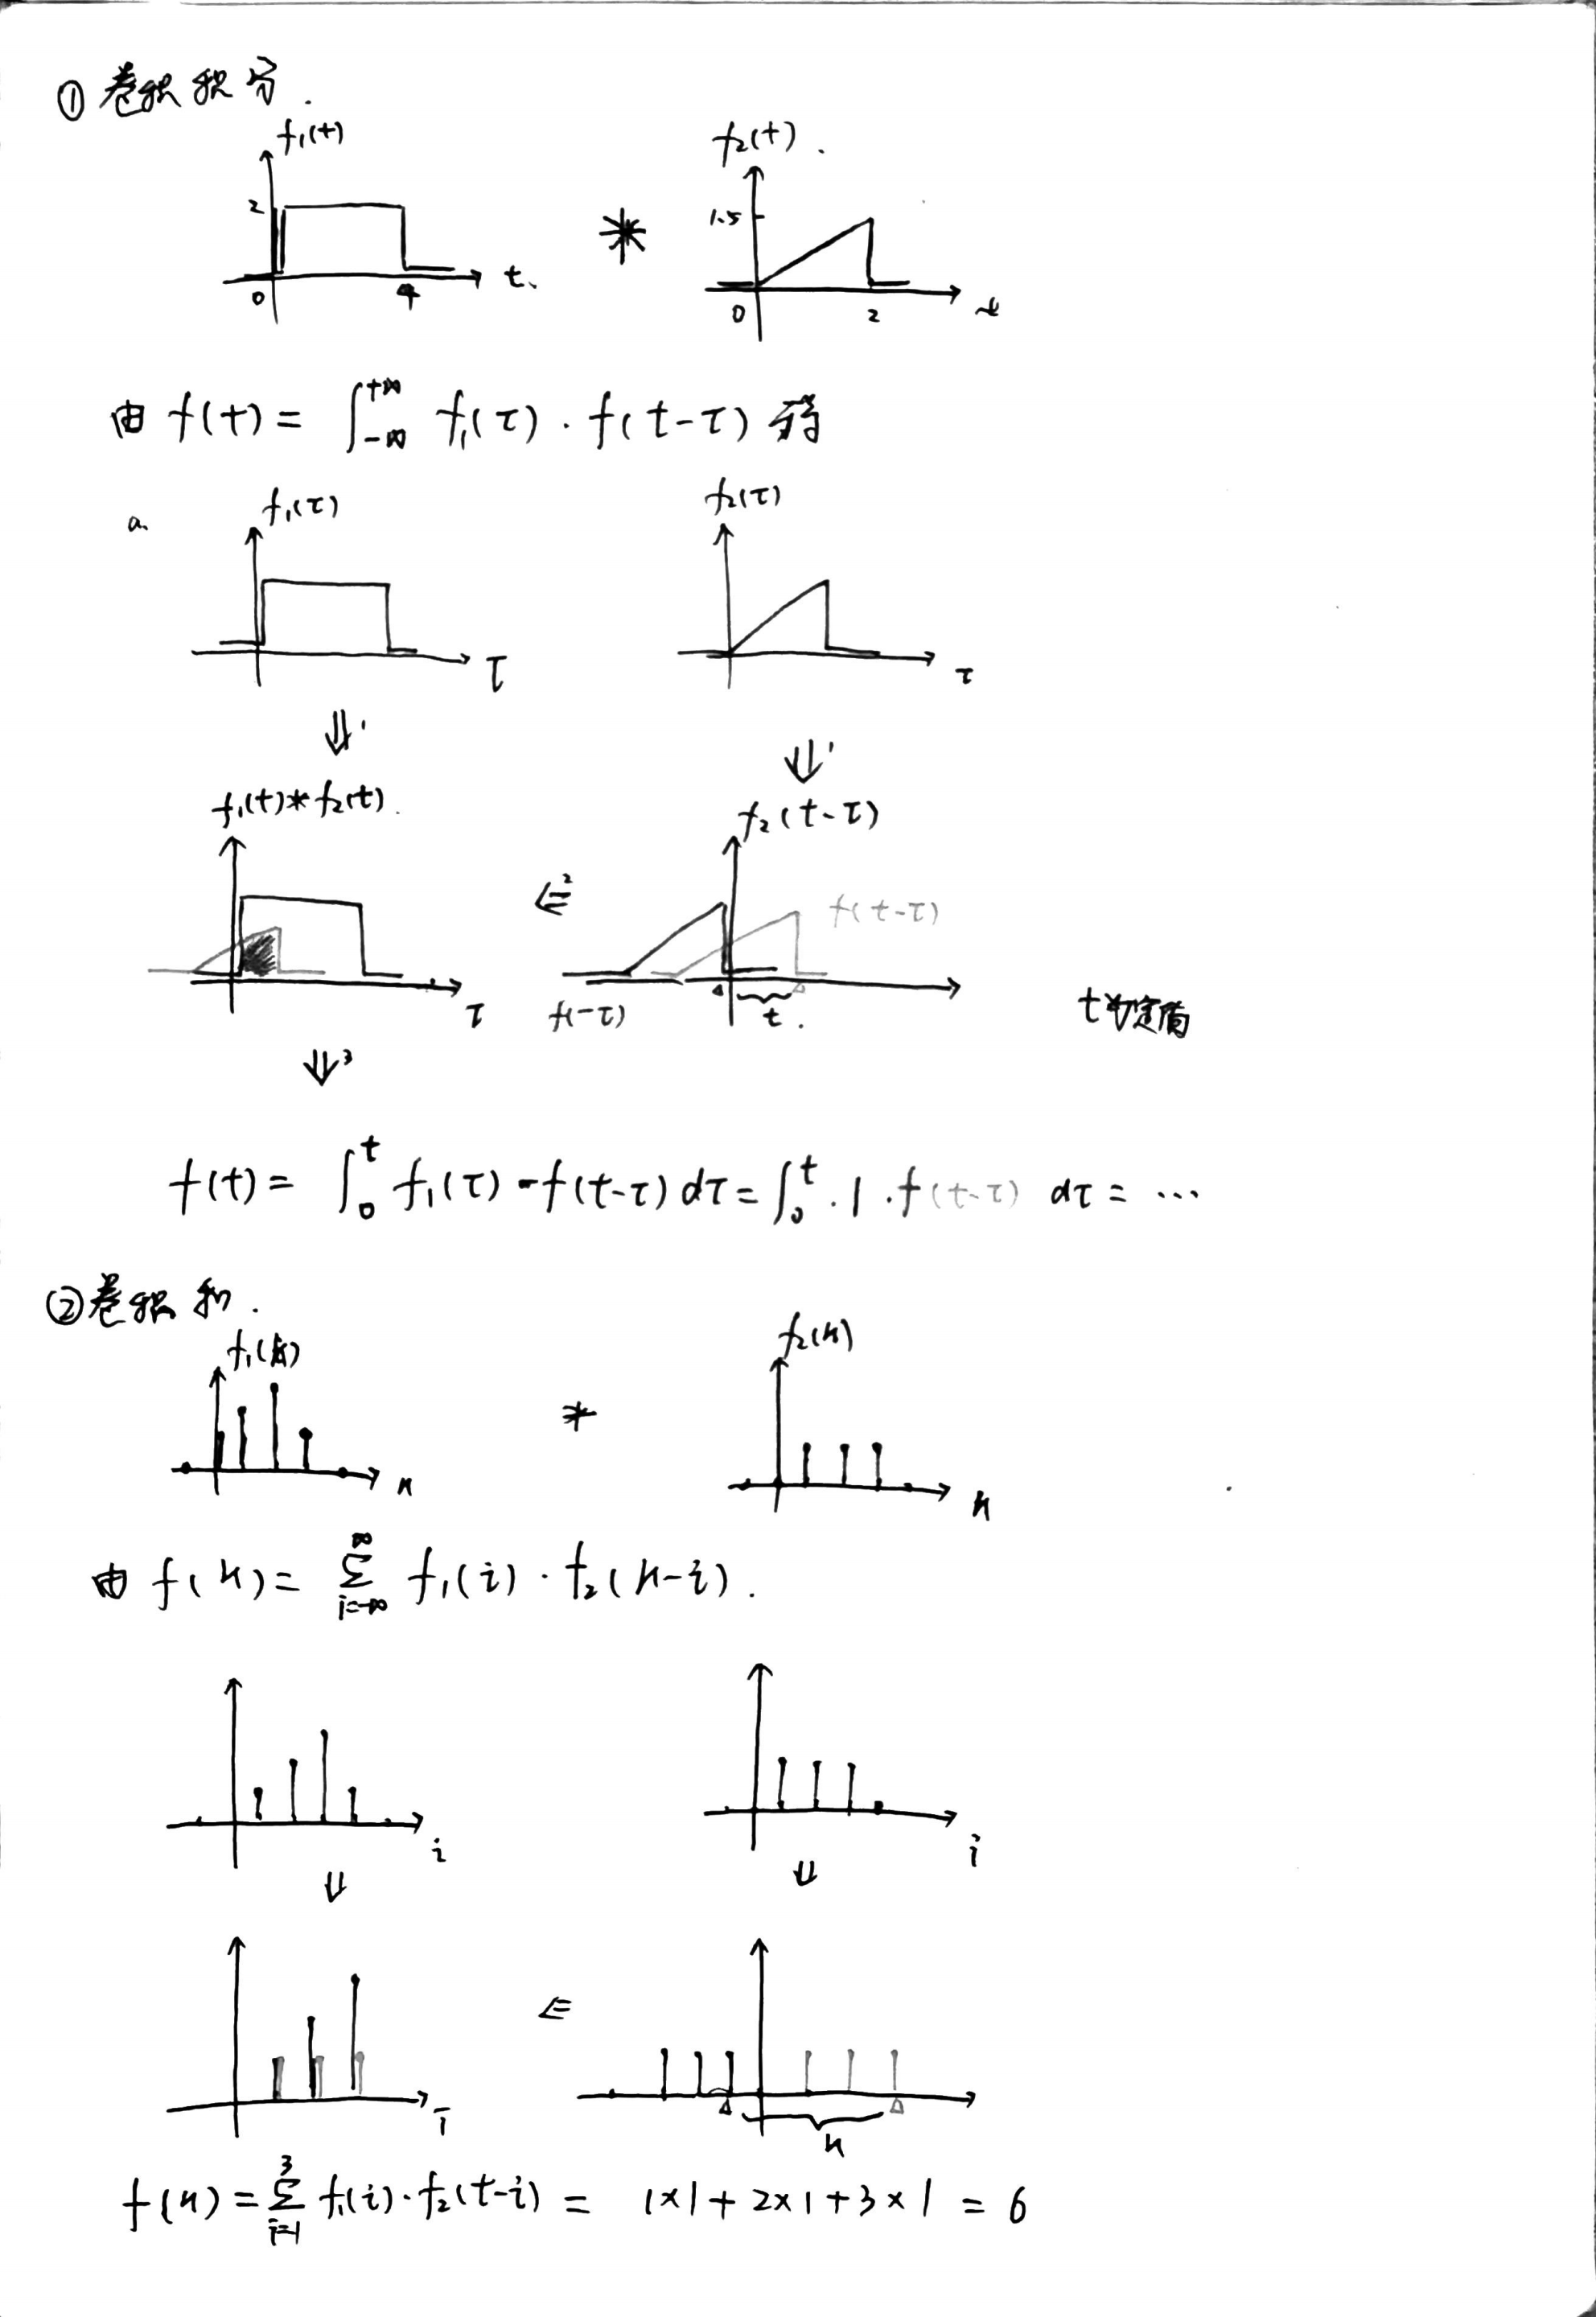 ① 卷积积分.
f₁(t)
f₂(t).
2
*
1.5
0 4 t.
0 2 t
由 f(t) = ∫_{-∞}^{+∞} f₁(τ) · f(t-τ) 得
a.
f₁(τ)
f₂(τ)
τ
τ
⇓¹
⇓¹
f₁(t)*f₂(t).
f₂(t-τ)
⇐²
f(t-τ)
τ
f(-τ)
t.
t为定值
⇓³
f(t) = ∫₀^t f₁(τ) - f(t-τ) dτ = ∫₀^t · 1 · f(t-τ) dτ = ...
② 卷积和.
f₁(k)
f₂(k)
*
k
k
由 f(k) = Σ_{i=-∞}^{∞} f₁(i) · f₂(k-i).
i
i
⇓
⇓
⇐
i
k
f(k) = Σ_{i=1}^{3} f₁(i)·f₂(t-i) = 1×1+2×1+3×1 = 6